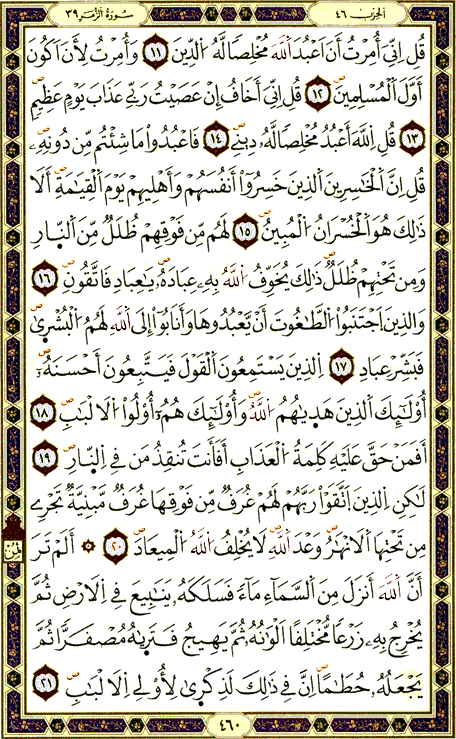 الحزب ٤٦
سورة الزمر ٣٩
قُلِ اِنِّيَ أُمِرْتُ أَنَ اَعْبُدَ اَللَّهَ مُخْلِصاً لَّهُ اُ۬لدِّينَ ١١ وَأُمِرْتُ لِأَنَ اَكُونَ
أَوَّلَ اَلْمُسْلِمِينَ ١٢ قُلِ اِنِّيَ أَخَافُ إِنْ عَصَيْتُ رَبِّے عَذَابَ يَوْمٍ عَظِيمٍ
١٣ قُلِ اِللَّهَ أَعْبُدُ مُخْلِصاً لَّهُۥ دِينِے ١٤ فَاعْبُدُواْ مَا شِئْتُم مِّن دُونِهِۦ
قُلِ اِنَّ اَلْخَٰسِرِينَ اَلذِينَ خَسِرُوٓاْ أَنفُسَهُمْ وَأَهْلِيهِمْ يَوْمَ اَلْقِيَٰمَةِ أَلَا
ذَٰلِكَ هُوَ اَلْخُسْرَانُ اُ۬لْمُبِينُ ١٥ لَهُم مِّن فَوْقِهِمْ ظُلَلٌ مِّنَ اَلنّ۪ارِ
وَمِن تَحْتِهِمْ ظُلَلٌ ذَٰلِكَ يُخَوِّفُ اُ۬للَّهُ بِهِۦ عِبَادَهُۥ يَٰعِبَادِ فَاتَّقُونِ ١٦
وَالذِينَ اَجْتَنَبُواْ اُ۬لطَّٰغُوتَ أَنْ يَّعْبُدُوهَا وَأَنَابُوٓاْ إِلَى اَللَّهِ لَهُمُ اُ۬لْبُشْر۪ىٰ
فَبَشِّرْ عِبَادِ ١٧ اِلذِينَ يَسْتَمِعُونَ اَلْقَوْلَ فَيَتَّبِعُونَ أَحْسَنَهُۥٓ
أُوْلَٰٓئِكَ اَلذِينَ هَد۪يٰهُمُ اُ۬للَّهُ وَأُوْلَٰٓئِكَ هُمُۥٓ أُوْلُواْ اُ۬لَالْبَٰبِ ١٨
أَفَمَنْ حَقَّ عَلَيْهِ كَلِمَةُ اُ۬لْعَذَابِ أَفَأَنتَ تُنقِذُ مَن فِي اِلنّ۪ارِ ١٩
لَٰكِنِ اِلذِينَ اَتَّقَوْاْ رَبَّهُمْ لَهُمْ غُرَفٌ مِّن فَوْقِهَا غُرَفٌ مَّبْنِيَّةٌ تَجْرِے
مِن تَحْتِهَا اَلَانْهَٰرُ وَعْدَ اَللَّهِ لَا يُخْلِفُ اُ۬للَّهُ اُ۬لْمِيعَادَ ٢٠ ۞ أَلَمْ تَرَ
أَنَّ اَللَّهَ أَنزَلَ مِنَ اَلسَّمَآءِ مَآءً فَسَلَكَهُۥ يَنَٰبِيعَ فِي اِلَارْضِ ثُمَّ
يُخْرِجُ بِهِۦ زَرْعاً مُّخْتَلِفاً اَلْوَٰنُهُۥ ثُمَّ يَهِيجُ فَتَر۪يٰهُ مُصْفَرّاً ثُمَّ
يَجْعَلُهُۥ حُطَٰماً اِنَّ فِي ذَٰلِكَ لَذِكْر۪ىٰ لِأُوْلِي اِلَالْبَٰبِ ٢١
ثمن
٤٦٠